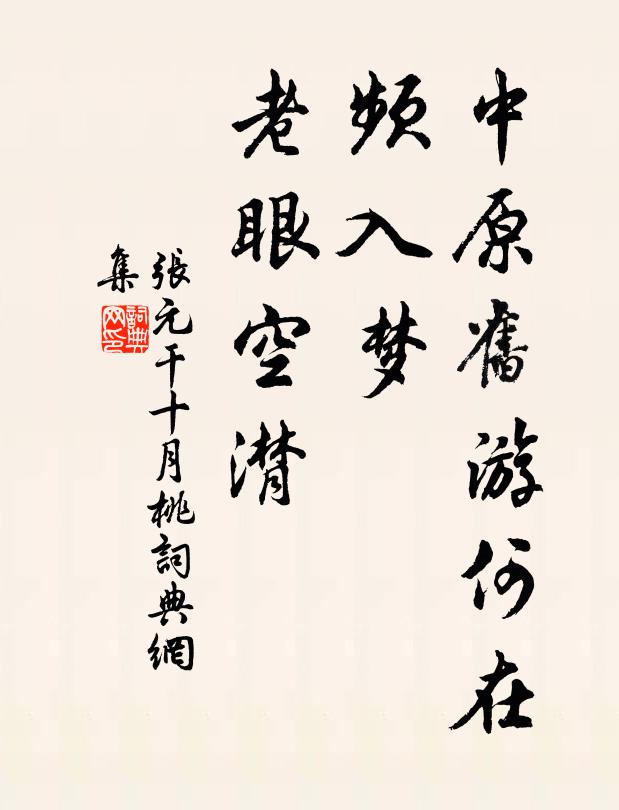 中原舊游何在
頻入梦
老眼空潸
張元干十月桃詞典網
集
詞典
网印